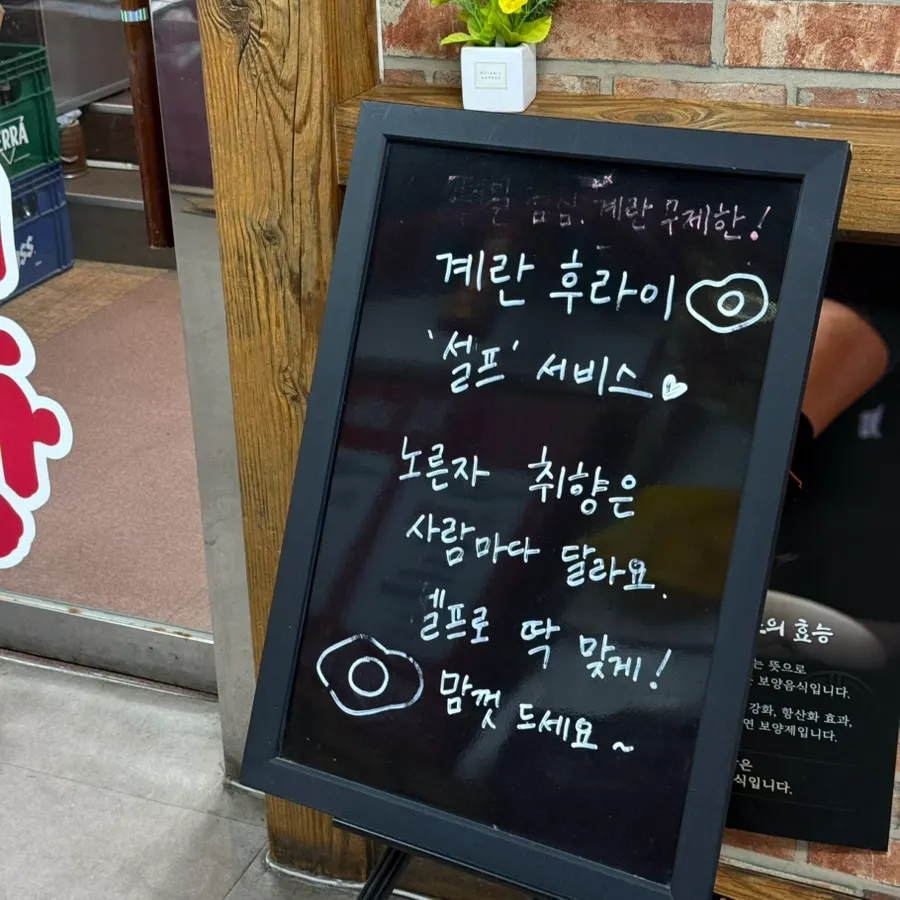 계란 무제한!
계란 후라이
'셀프' 서비스
노른자 취향은
사람마다 달라요.
셀프로 딱 맞게!
맘껏 드세요~
의 효능
는 뜻으로
보양음식입니다.
강화, 항산화 효과,
연 보양제입니다.
은
식입니다.